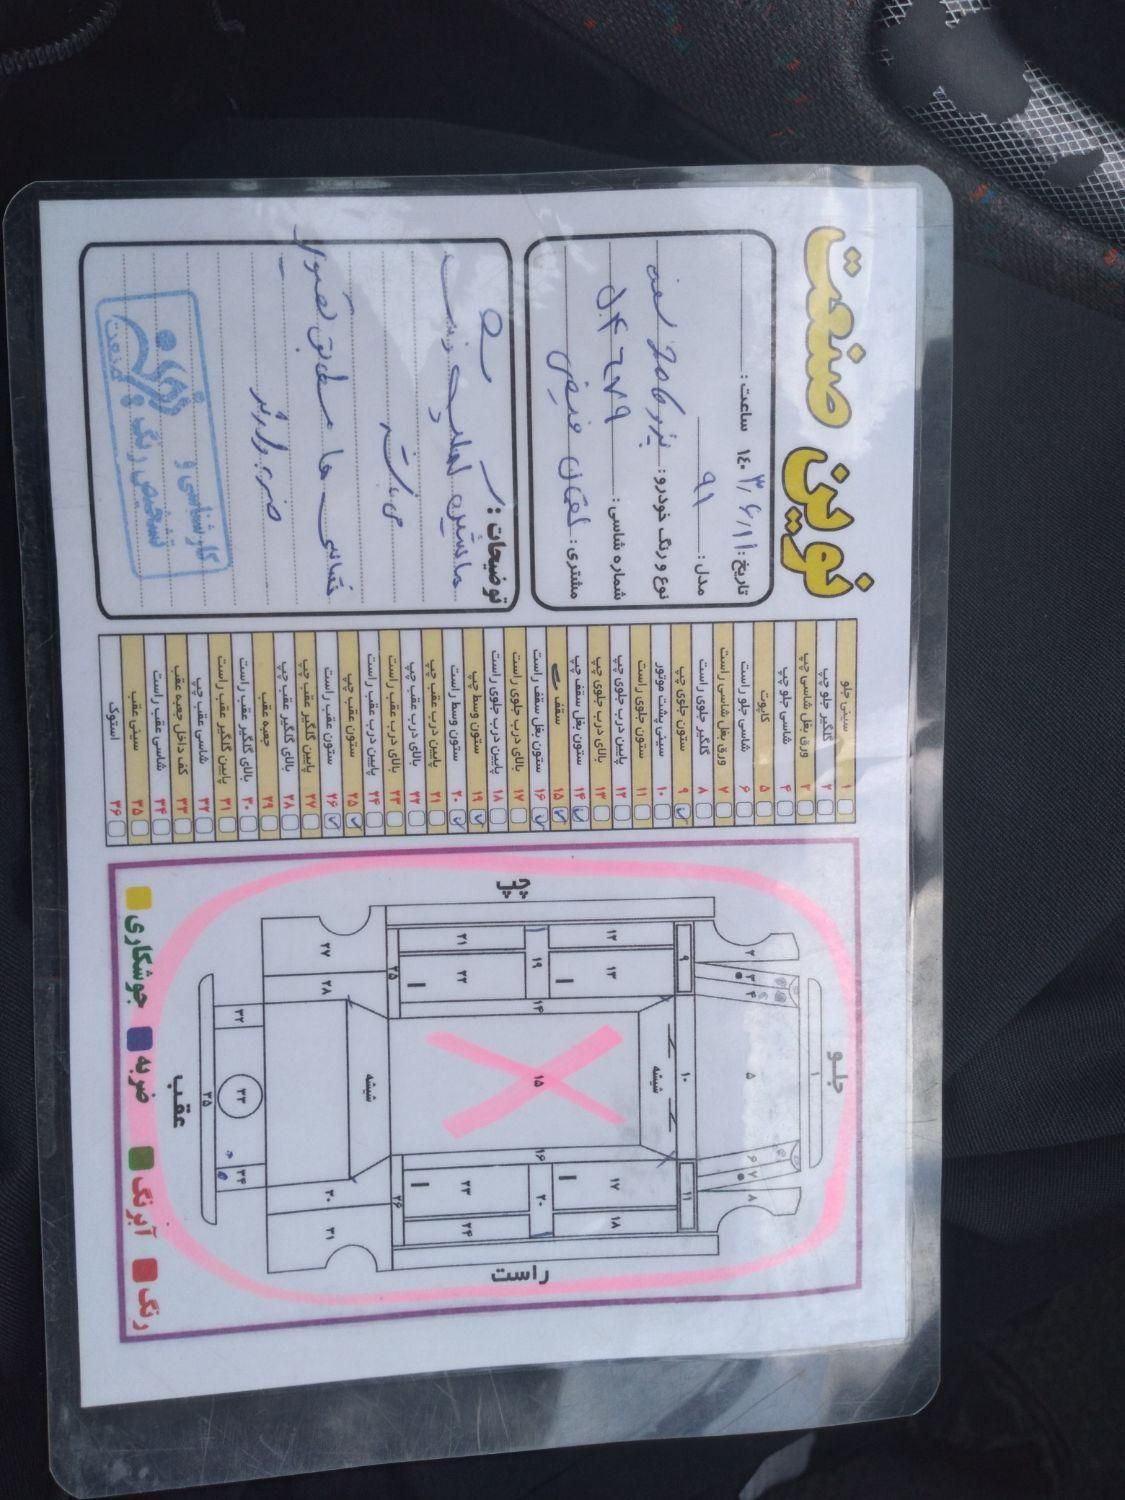 نوین صنعت
تاریخ: ۱۴۰۳/۶/۱۱ ساعت:
مدل: ۹۱
نوع و رنگ خودرو: پژو ۲۰۶ سفید
شماره شاسی: ۵۰۴۶۷۹
مشتری:
توضیحات:
ماشین
می باشد
شاسی ها مطابق تصویر
ضربه دارد
کارشناسی و
تشخیص رنگ
نوین صنعت
سینی جلو ۱
گلگیر جلو چپ ۲
ورق بغل شاسی چپ ۳
شاسی جلو چپ ۴
کاپوت ۵
شاسی جلو راست ۶
ورق بغل شاسی راست ۷
گلگیر جلوی راست ۸
ستون جلوی چپ ۹
سینی پشت موتور ۱۰
ستون جلوی راست ۱۱
پایین درب جلوی چپ ۱۲
بالای درب جلوی چپ ۱۳
ستون بغل سقف چپ ۱۴
سقف ۱۵
ستون بغل سقف راست ۱۶
بالای درب جلوی راست ۱۷
پایین درب جلوی راست ۱۸
ستون وسط چپ ۱۹
ستون وسط راست ۲۰
پایین درب عقب چپ ۲۱
بالای درب عقب چپ ۲۲
بالای درب عقب راست ۲۳
پایین درب عقب راست ۲۴
ستون عقب چپ ۲۵
ستون عقب راست ۲۶
پایین گلگیر عقب چپ ۲۷
بالای گلگیر عقب چپ ۲۸
جعبه عقب ۲۹
بالای گلگیر عقب راست ۳۰
پایین گلگیر عقب راست ۳۱
شاسی عقب چپ ۳۲
کف داخل جعبه عقب ۳۳
شاسی عقب راست ۳۴
سینی عقب ۳۵
استوک ۳۶
جلو
چپ
راست
عقب
شیشه
شیشه
۱
۲
۳
۴
۵
۶
۷
۸
۹
۱۰
۱۱
۱۲
۱۳
۱۴
۱۵
۱۶
۱۷
۱۸
۱۹
۲۰
۲۱
۲۲
۲۳
۲۴
۲۵
۲۶
۲۷
۲۸
۳۰
۳۱
۳۲
۳۳
۳۴
۳۵
جوشکاری ضربه آبرنگ رنگ